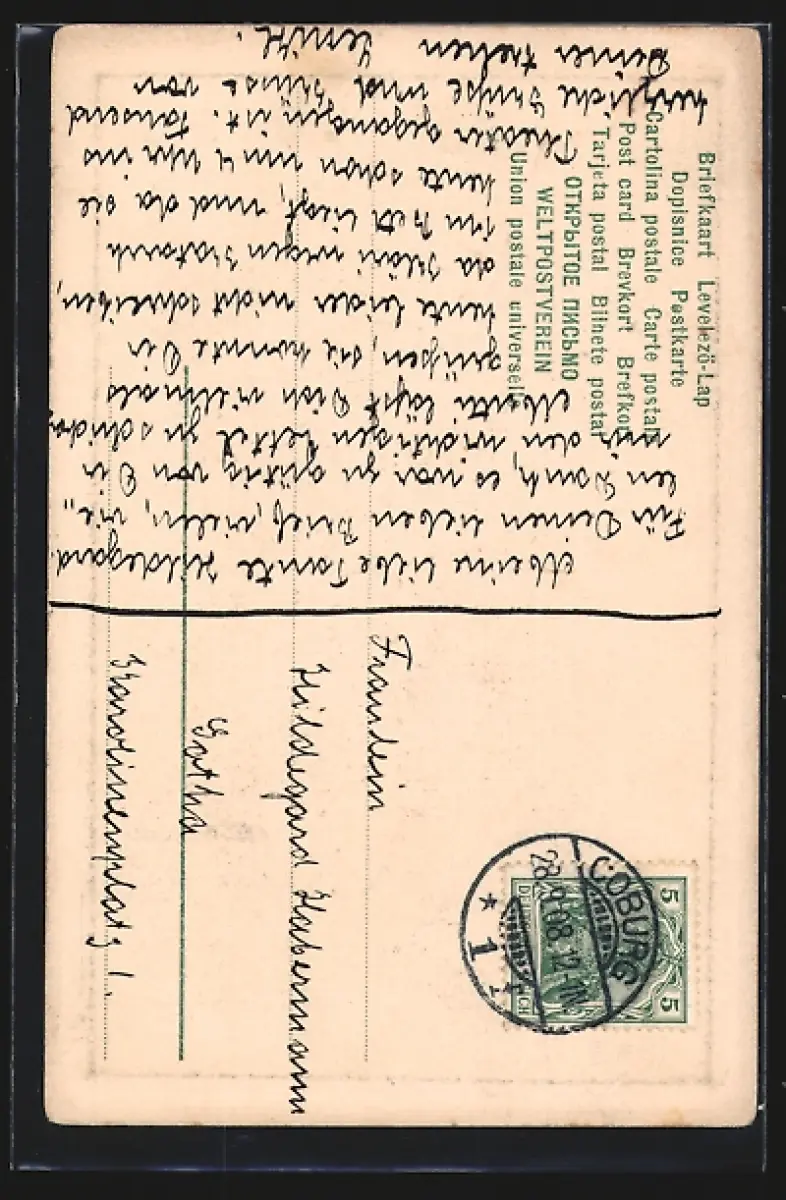 Briefkaart Levelező-Lap
Dopisnice Postkarte
Cartolina postale Carte postale
Post card Brevkort Brefkort
Tarjeta postal Bilhete postal
ОТКРЫТОЕ ПИСЬМО
WELTPOSTVEREIN
Union postale universelle
Meine liebe Tante Hildegard.
Für Deinen lieben Brief, vielen, vie„
len Dank, es war zu gütig von Dir
mir den wichtigen Zettel zu schicken
Mutti läßt Dich vielmals
grüßen, sie konnte Dir
heute leider nicht schreiben,
da Kläri wegen Katarrh
im Bett liegt, und da sie
heute schon um 4 Uhr ins
Theater gegangen ist. Tausend
herzliche Grüße und Küsse von
Deiner treuen
Fräulein
Hildegard Habermann
Gotha
Karolinenplatz 1.
5 5
COBURG
28.9.08.12-1N.
* 1